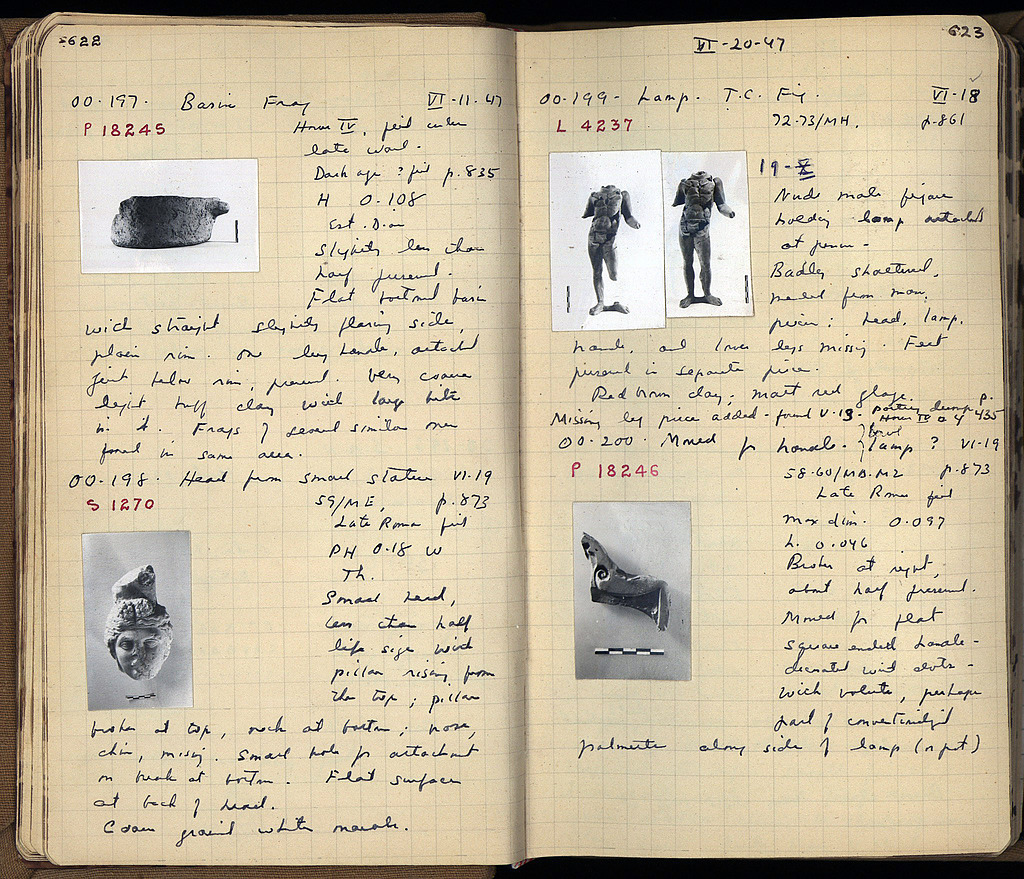 622
OO·197. Basin Frag VI-11-47
P 18245
House IV, fill under
late wall.
Dark age ? fill p.835
H 0.108
Est. Diam
Slightly less than
half preserved.
Flat bottomed basin
with straight slightly flaring side,
plain rim. One lug handle, attached
just below rim, preserved. Very coarse
light buff clay with large bits
in it. Frags of several similar ones
found in same area.
OO·198. Head from small statue VI-19
S 1270
59/ME, p.873
Late Roman fill
PH 0.18 W
Th.
Small head,
less than half
life size with
pillar rising from
the top; pillar
broken at top, neck at bottom; nose,
chin, missing. Small hole for attachment
on break at bottom. Flat surface
at back of head.
Coarse grained white marble.
623
VI-20-47
OO·199- Lamp. T.C. Fig. VI-18
L 4237
72-73/MH. p.861
19-
Nude male figure
holding lamp attached
at
Badly shattered,
mended from many
pieces; head, lamp,
hands, and lower legs missing. Feet
preserved in separate piece.
Red brown clay; matt red glaze.
Missing leg piece added - found V-13- pottery dump House IV p. 435
OO·200. Mould for handle. bowl lamp? VI-19
P 18246
58-60/MB-M2 p.873
Late Roman fill
Max dim. 0.097
h. 0.046
Broken at right,
about half preserved.
Mould for flat
square ended handle-
decorated with dots-
with volute, perhaps
part of conventionalized
palmette along side of lamp (or pot)